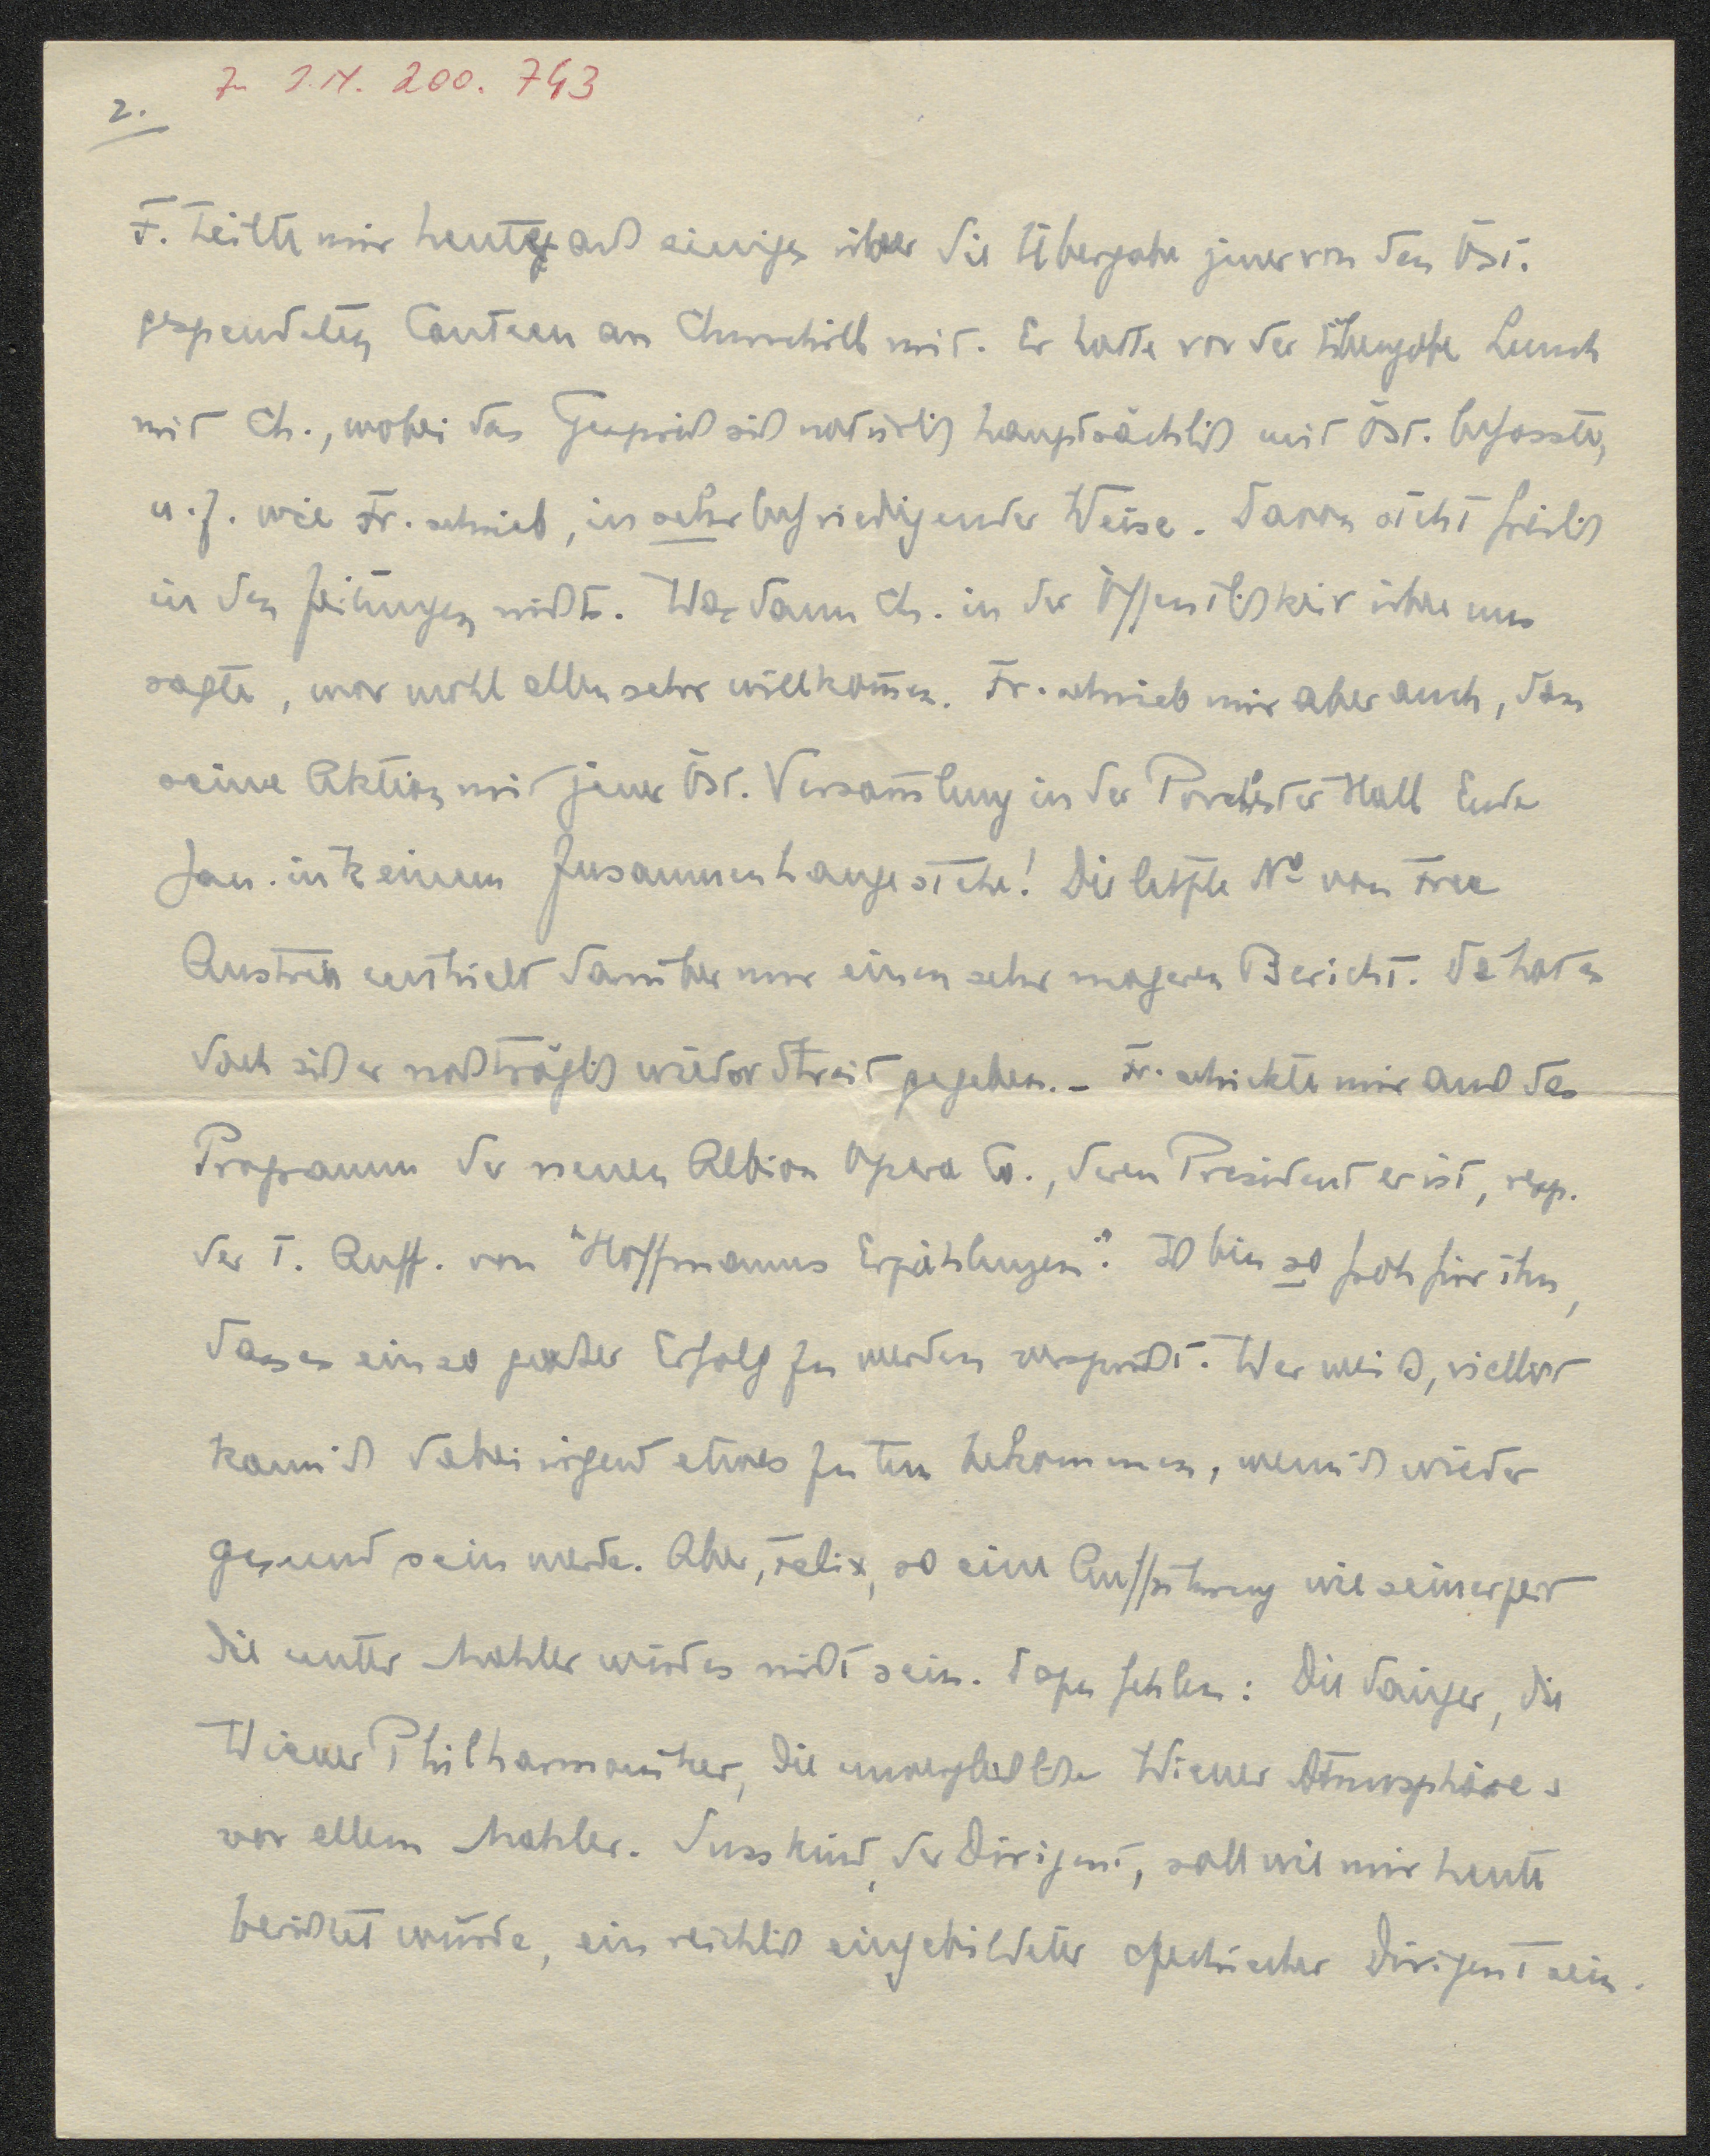 Zu I.N. 200.743
2.
F. teilte mir heute auch einiges über die Übergabe jener von den Öst.
gespendeten Canteen an Churchill mit. Er hatte vor der Übergabe Lunch
mit Ch., wobei das Gespräch sich natürlich hauptsächlich mit Öst. befasste,
u. z. wie Fr. schrieb, in sehr befriedigender Weise. Davon steht freilich
in den Zeitungen nichts. Was dann Ch. in der Öffentlichkeit über uns
sagte, war wohl allen sehr willkommen. Fr. schrieb mir aber auch, dass
seine Aktion mit jener Öst. Versammlung in der Porchester Hall Ende
Jan. in keinem Zusammenhange stehe! Die letzte No von Free
Austria enthielt darüber nur einen sehr mageren Bericht. Da hat es
doch sicher nachträglich wieder Streit gegeben. – Fr. schickte mir auch das
Programm der neuen Albion Opera Co., deren President er ist, resp.
der I. Auff. von "Hoffmanns Erzählungen". Ich bin so froh für ihn,
dass es ein so guter Erfolg zu werden verspricht. Wer weiss, vielleicht
kann ich dabei irgend etwas zu tun bekommen, wenn ich wieder
gesund sein werde. Aber, Felix, so eine Aufführung wie seinerzeit
die unter Mahler wird es nicht sein. Dazu fehlen: Die Sänger, die
Wiener Philharmoniker, die unvergleichliche Wiener Atmosphäre u
vor allem Mahler. Susskind, der Dirigent, soll wie mir heute
berichtet wurde, ein reichlich eingebildeter tschechischer Dirigent sein.